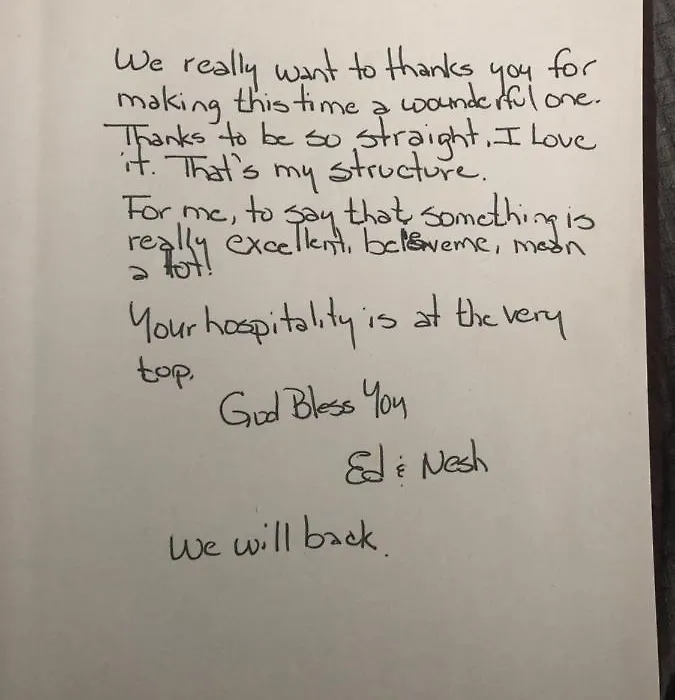 We really want to thanks you for
making this time a wounderful one.
Thanks to be so straight. I Love
it. That's my structure.
For me, to say that something is
really excellent, beleveme, mean
a lot!
Your hospitality is at the very
top.
God Bless You
Ed & Nesh
We will back.